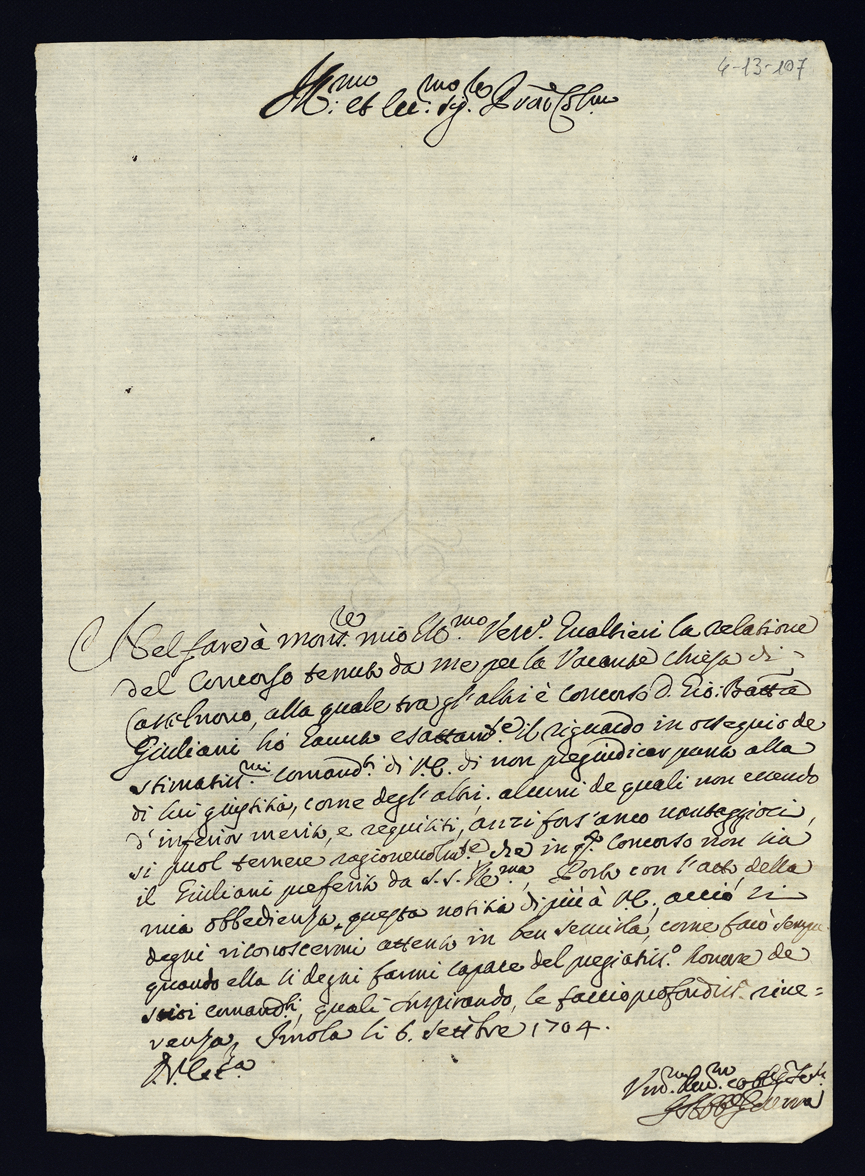 4-13-107
Ill.mo et Ecc.mo Sig.re
Nel fare à mons.re mio Ill.mo Vesc.o Gualtieri la relatione
del Concorso tenuto da me per la Vacante Chiesa di
Castelnovo, alla quale tra gl'altri è concorso D. Gio: Batta
Giuliani hò havuto esattam.te il riguardo in ossequio de
stimatiss.mi comand.ti di V.E. di non pregiudicar punto alla
di lui giustitia, come degl'altri. alcuni de quali non essendo
d'inferior merito, e requisiti, anzi fors'anco vantaggiosi,
si puol temere ragionevolm.te che in q.to concorso non sia
il Giuliani preferito da S.S. Ill.ma, Porto con l'atto della
mia obbedienza questa notitia di più à V.E. acciò si
degni riconoscermi attento in ben servirla, come farò sempre
quando ella si degni farmi capace del pregiatiss.o honore de
suoi comand.ti, quali inspirando, le faccio profondiss.a rive=
renza, Imola li 6. Settbre 1704.
D.V. Ecc.za